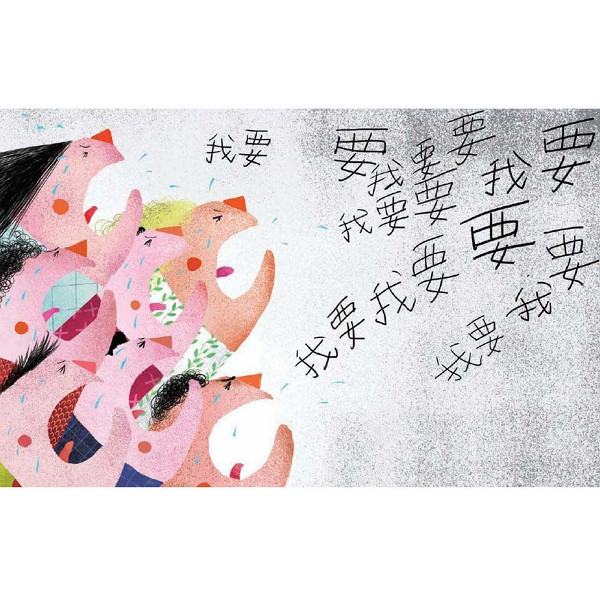 我要
要
我要要
我要
我要要
要
我要我要
我要
我要